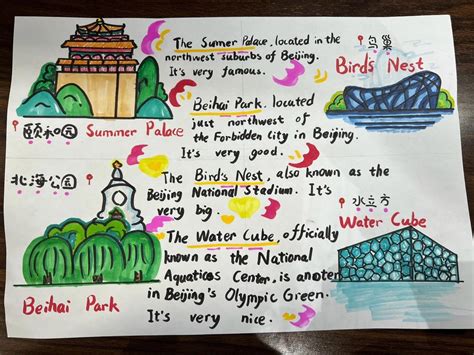 The Sumer Palace, located in the
northwest suburbs of Beijing.
It's very famous.
颐和园 Summer Palace
鸟巢
Bird's Nest
Beihai Park, located
just northwest of
the Forbidden City in Beijing.
It's very good.
北海公园
Beihai Park
The Bird's Nest, also known as the
Beijing National Stadium. It's
very big.
水立方
Water Cube
The Water Cube, officially
known as the National
Aquatics Center, is another
in Beijing's Olympic Green.
It's very nice.